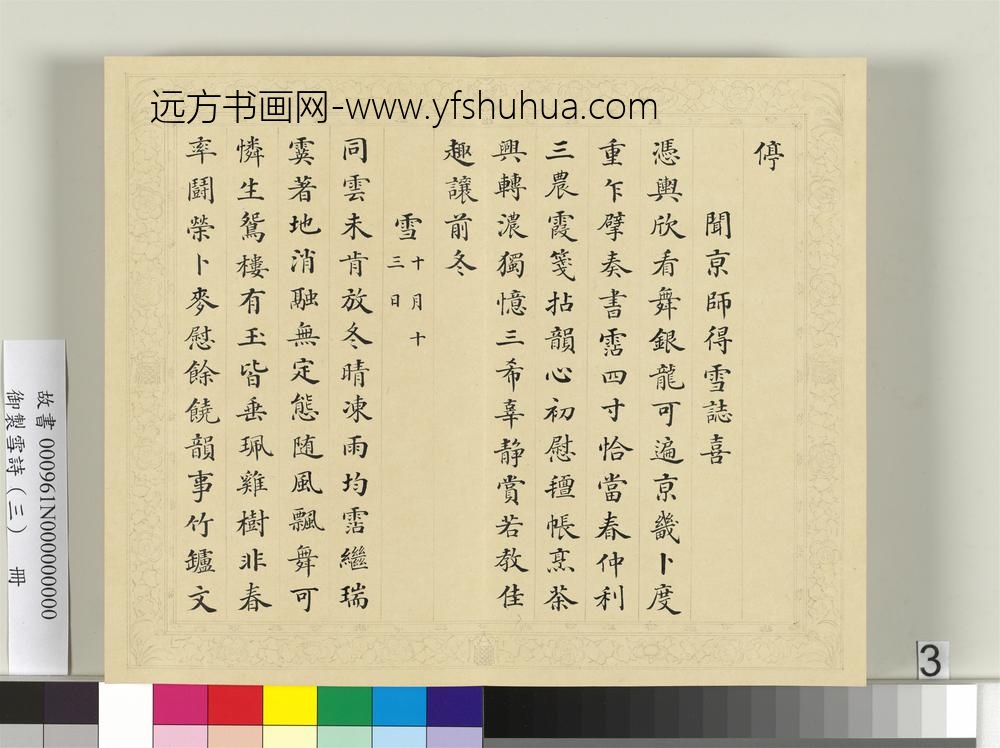 远方书画网-www.yfshuhua.com
停
聞京師得雪誌喜
憑輿欣看舞銀龍可遍京畿卜度
重乍擘奏書霑四寸恰當春仲利
三農霞箋拈韻心初慰氊帳烹茶
興轉濃獨憶三希辜静賞若教佳
趣讓前冬
雪十月十三日
同雲未肯放冬晴凍雨均霑繼瑞
霙著地消融無定態随風飄舞可
憐生鴛樓有玉皆垂珮雞樹非春
率鬪榮卜麥慰餘饒韻事竹鑪文
故書 000961N000000000
御製雪詩（三） 冊
3